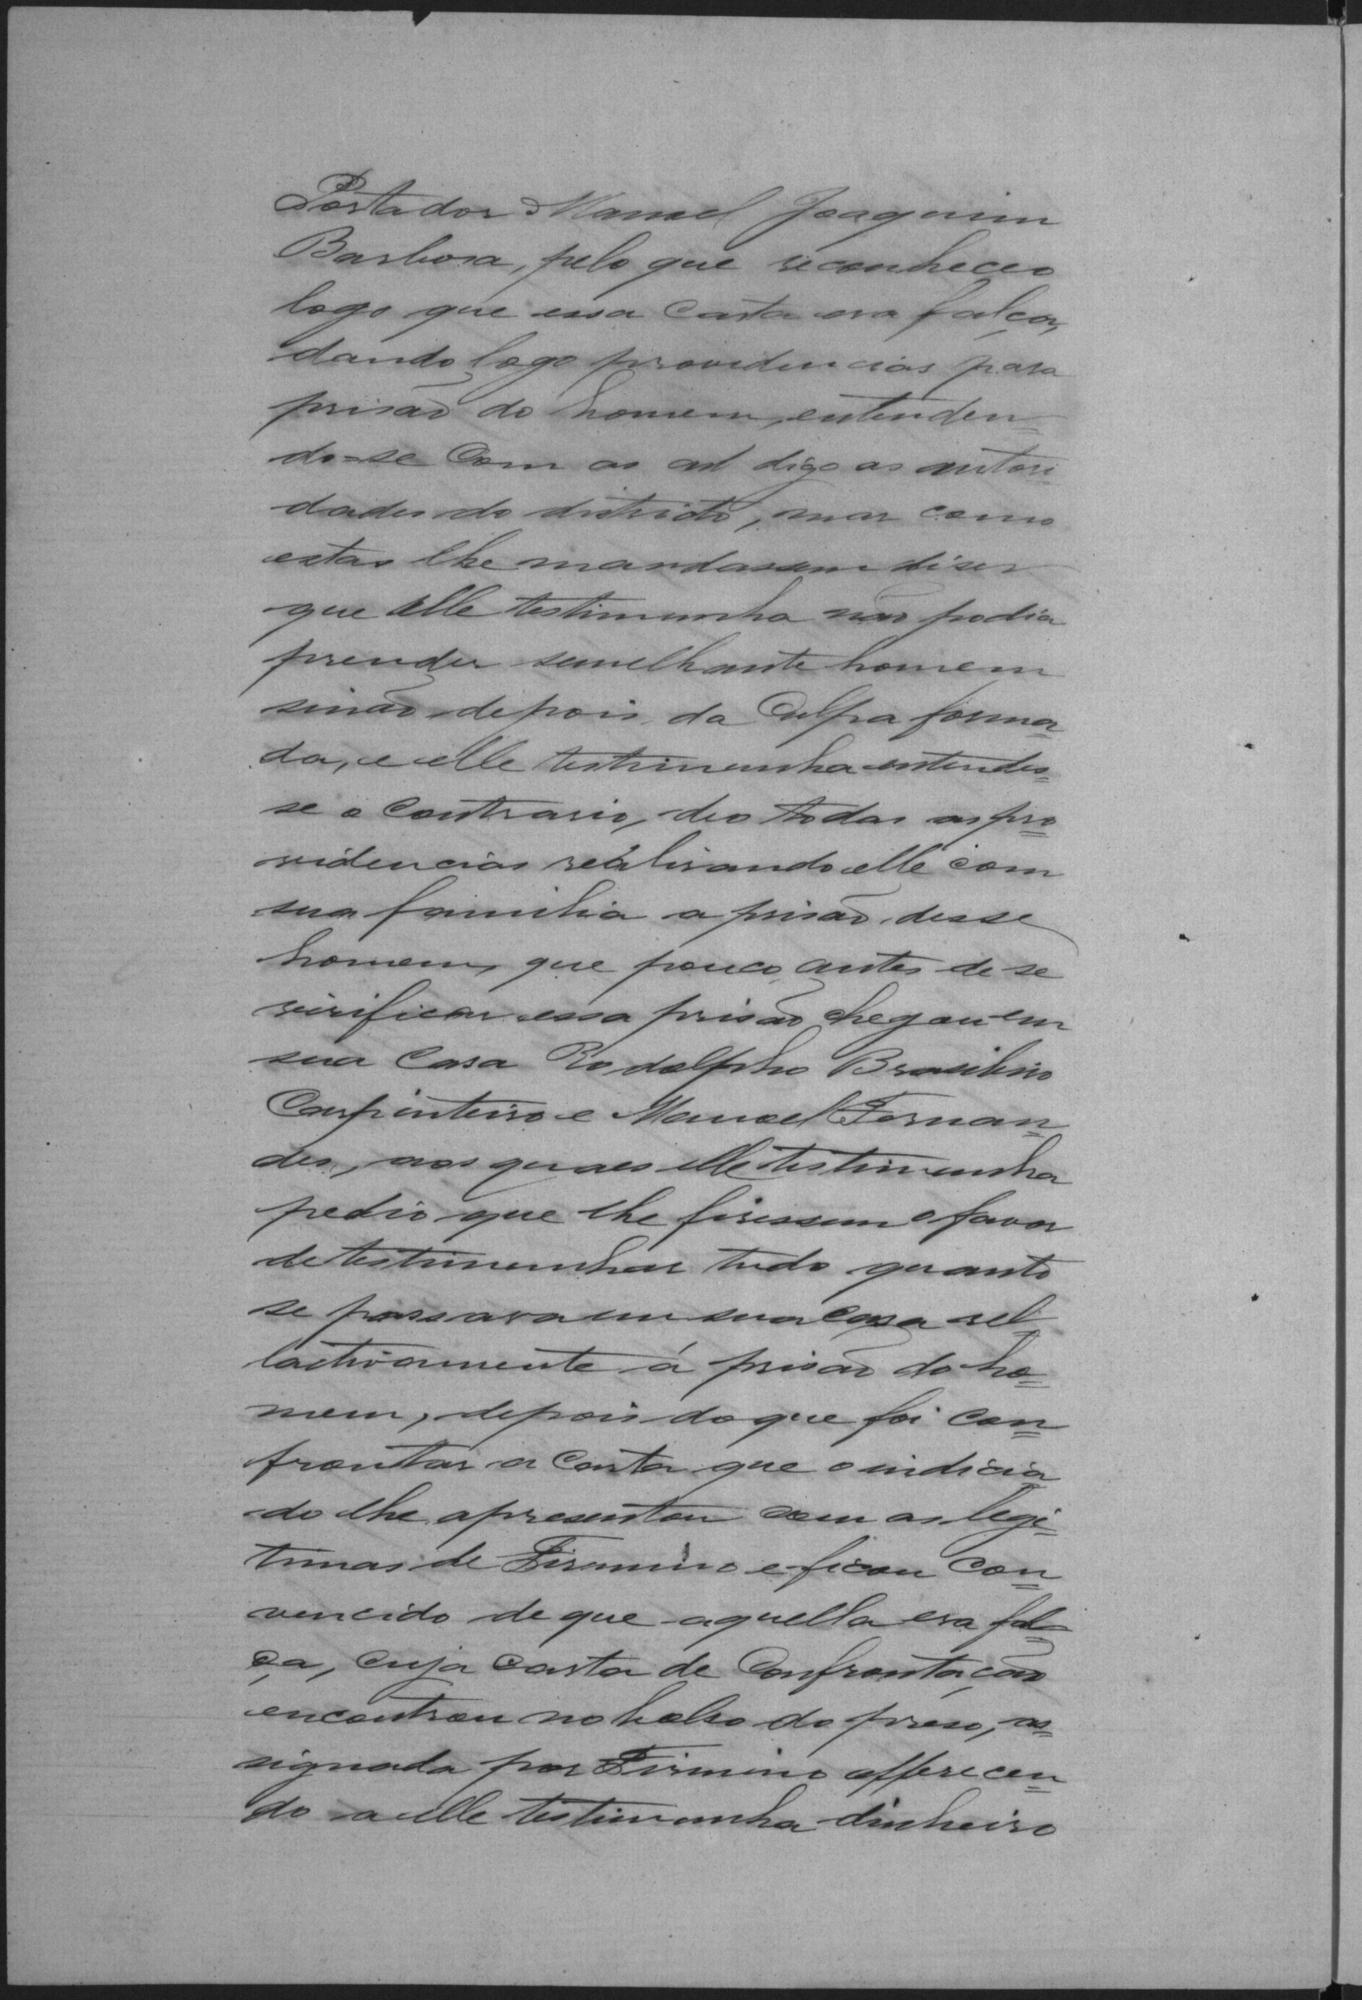 Portador Manoel Joaquim
Barbosa, pelo que reconheceo
logo que essa carta era falça,
dando logo providencias para
prisão do homem, entenden-
do-se com as ad digo as autori-
dades do districto, mas como
estas lhe mandassem diser
que elle testimunha não podia
prender semelhante homem
sinão depois da Culpa forma-
da, e elle testimunha entendes-
se o contrario, deo todas as pro=
videncias realisando elle com
sua familia a prisão desse
homem, que pouco antes de se
virificar essa prisão chegou em
sua casa Rodolpho Brasilino
Carpinteiro e Manoel Fernan=
des, aos quaes elle testimunha
pedio que lhe fisessem o favor
de testimunhar tudo quanto
se passava em sua casa rel-
lactivamente á prisão do ho=
mem, depois do que foi con=
frontar a Carta que o indicia
do lhe apresentou com as legi=
timas de Firmino e ficou con=
vencido de que aquella era fal=
ça, cuja carta de Confrontação
encontrou no bolso do preso, as=
signada por Firmino offerecen=
do a elle testimunha dinheiro